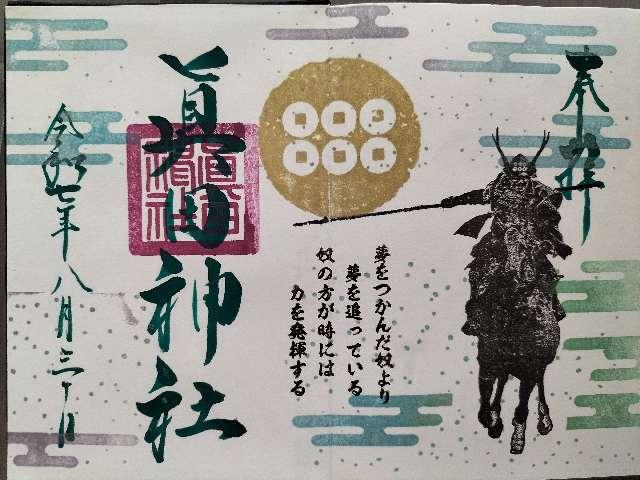 奉拝
夢をつかんだ奴より
夢を追っている
奴の方が時には
力を発揮する
眞田神社
令和七年八月三十日